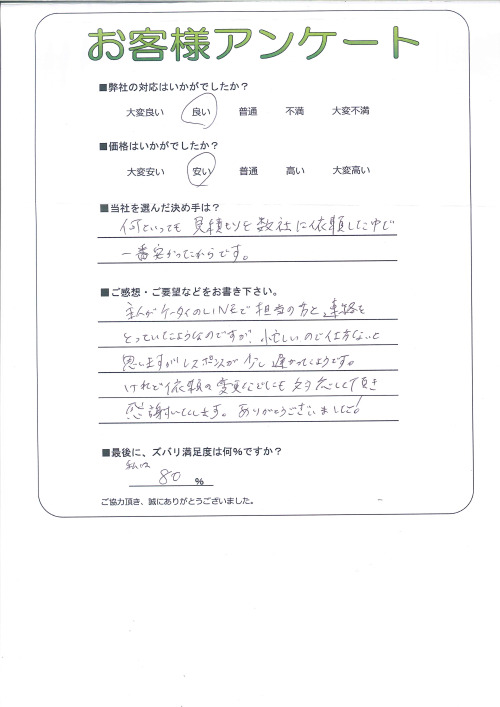 お客様アンケート
■弊社の対応はいかがでしたか？
大変良い 良い 普通 不満 大変不満
■価格はいかがでしたか？
大変安い 安い 普通 高い 大変高い
■当社を選んだ決め手は？
何といっても 見積もりを数社に依頼した中で
一番安かったからです。
■ご感想・ご要望などをお書き下さい。
主人がケータイのLINEで担当の方と連絡を
とっていたようなのですが、忙しいので仕方ないと
思いますがレスポンスが少し遅かったようです。
けれど依頼の変更などにも対応して頂き
感謝いたします。ありがとうございました！
■最後に、ズバリ満足度は何%ですか？
私は
80 %
ご協力頂き、誠にありがとうございました。